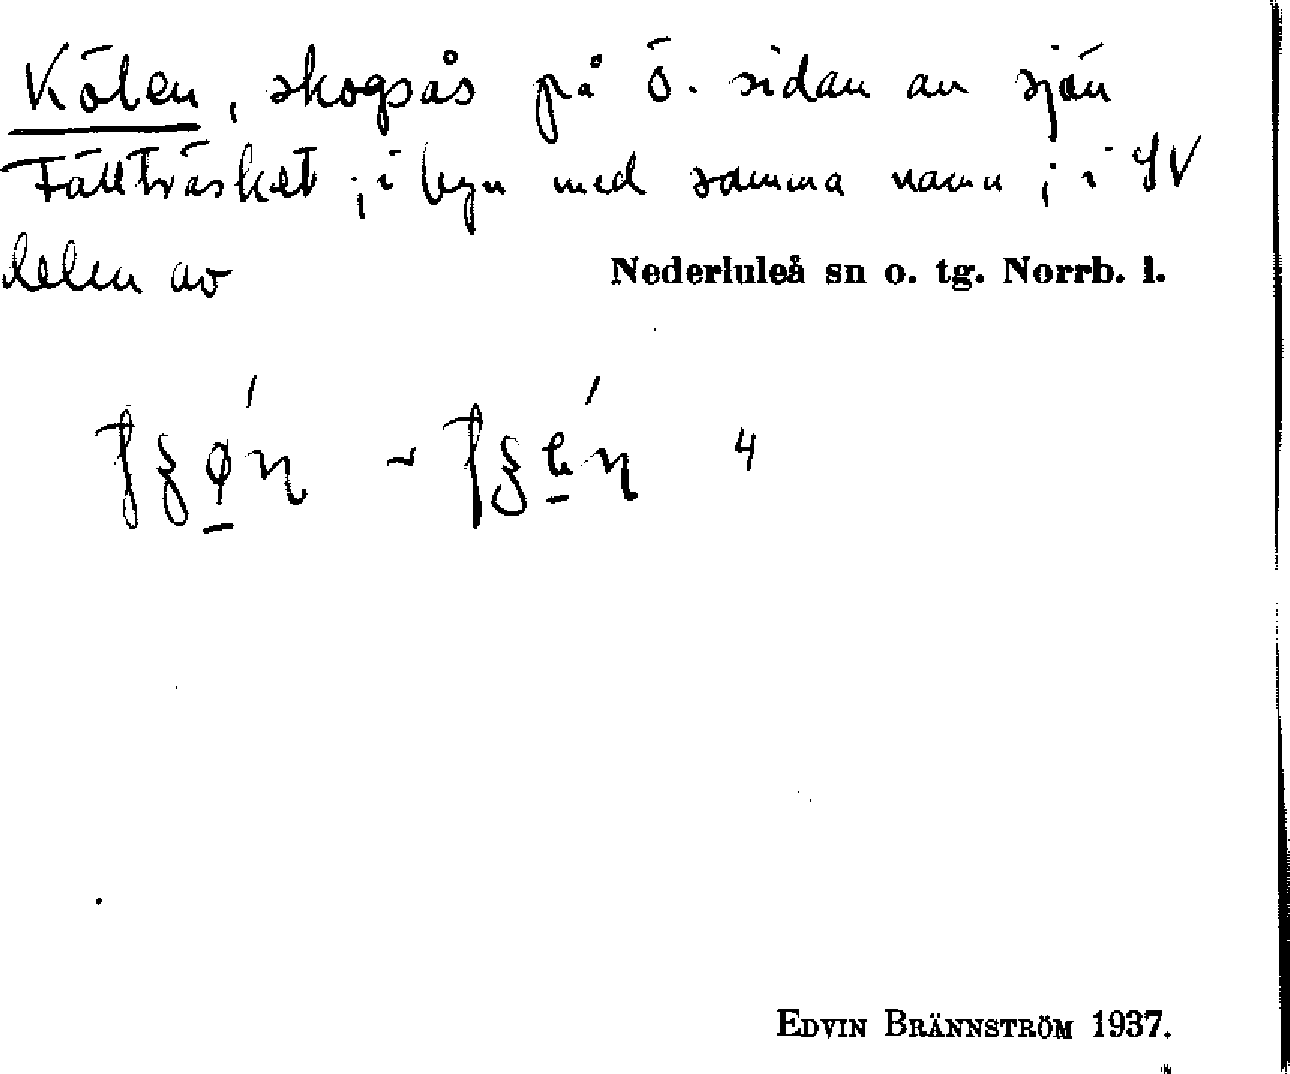 Kölen, skogsås på ö. sidan av sjön
Fällträsket; i byn med samma namn; i SV
delen av Nederluleå sn o. tg. Norrb. l.
4
EDVIN BRÄNNSTRÖM 1937.